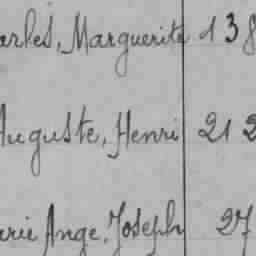 arles, Marguerite 138
Auguste, Henri 212
arie Ange, Joseph 27